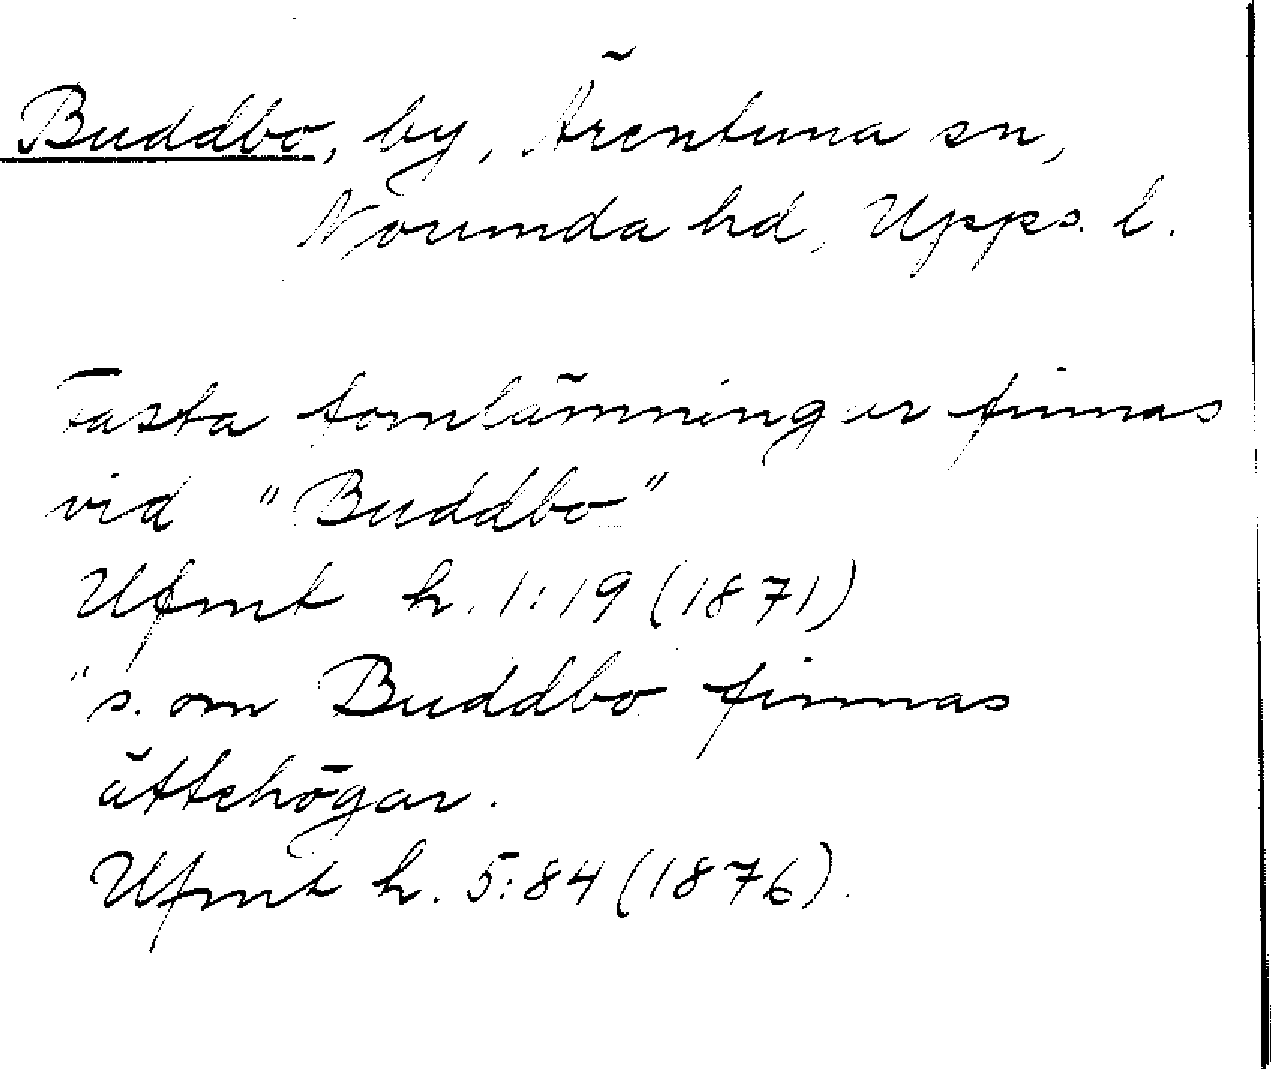 Buddbo, by, Ärentuna sn,
Norunda hd, Upps. l.
Fasta fornlämningar finnas
vid "Buddbo"
Ufmt h. 1:19 (1871)
"s. om Buddbo finnas
ättehögar.
Ufmt h. 5:84 (1876).